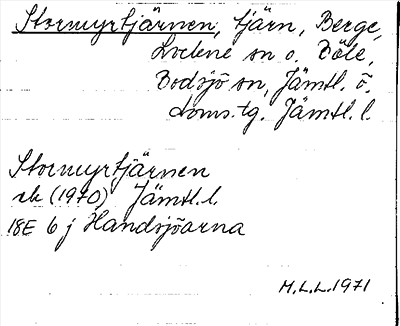 Stormyrtjärnen, tjärn, Berge,
Lockne sn o. Böle,
Bodsjö sn, Jämtl. ö.
doms.tg. Jämtl. l.
Stormyrtjärnen
ek (1970) Jämtl. l.
18E 6 j Handsjöarna
M.L.L. 1971